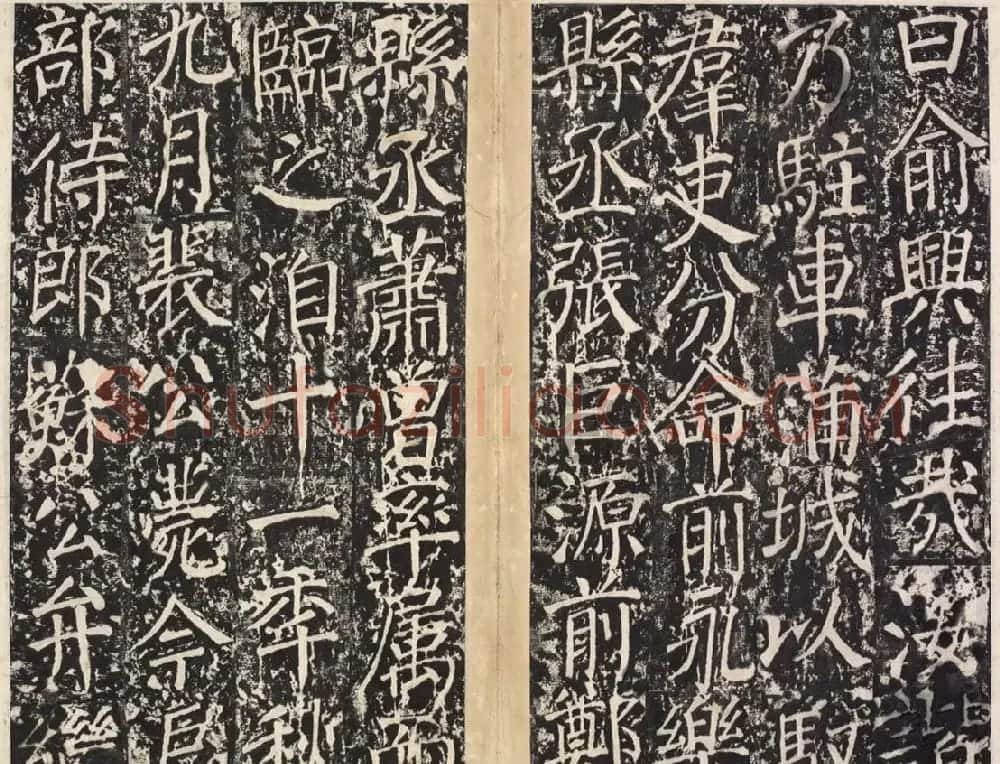 曰俞興往哉汝諧
乃駐車蒲城以馭
羣吏分命前永樂
縣丞張巨源前鄭
縣丞蕭曾率属而
臨之洎十一年秋
九月裴公薨今户
部侍郎蘇公弁繼
Shufaziliao.COM